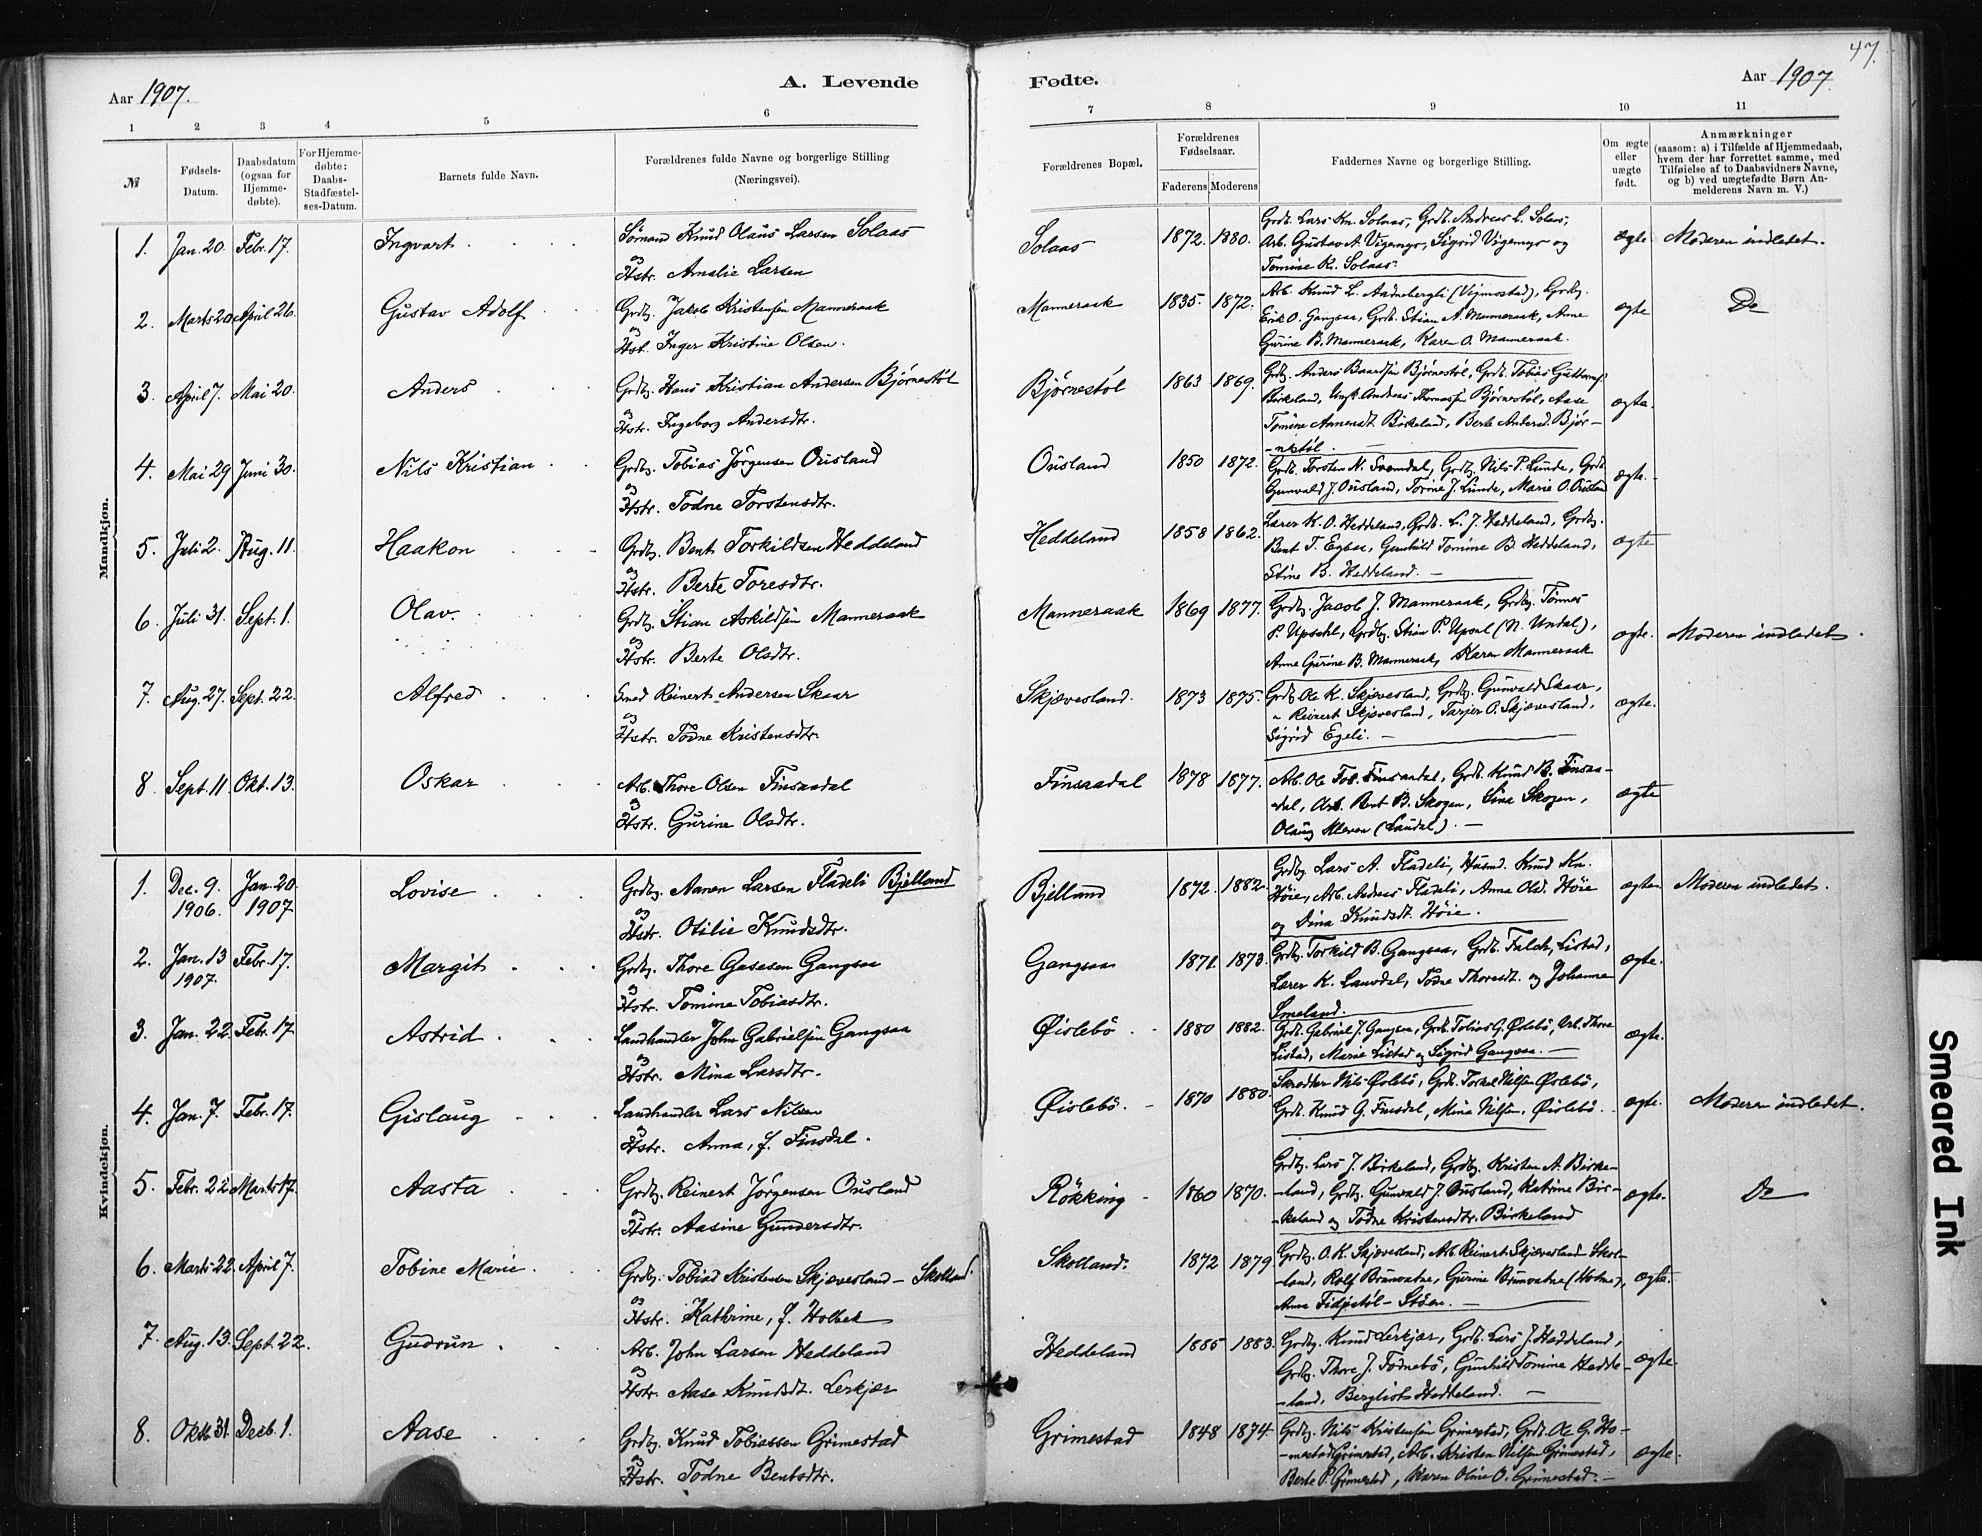 47.
Aar 1907.
A. Levende
Fødte.
Aar 1907.
1 2 3 4 5 6 7 8 9 10 11
№
Fødsels-
Datum.
Daabsdatum
(ogsaa for
Hjemme-
døbte).
For Hjemme-
døbte:
Daabs-
Stadfæstel-
ses-Datum.
Barnets fulde Navn.
Forældrenes fulde Navne og borgerlige Stilling
(Næringsvei).
Forældrenes Bopæl.
Forældrenes
Fødselsaar.
Faderens Moderens
Faddernes Navne og borgerlige Stilling.
Om ægte
eller
uægte
født.
Anmærkninger
(saasom: a) i Tilfælde af Hjemmedaab,
hvem der har forrettet samme, med
Tilføielse af to Daabsvidners Navne,
og b) ved uægtefødte Børn An-
melderens Navn m. V.)
Mandkjøn.
1. Jan. 20. Febr. 17. Ingvart Sømand Knud Olaus Larsen Solaas
og
Hstr. Amalie Larsen
Solaas 1872. 1880.
Grdb. Lars Kn. Solaas, Grdb. Andreas L. Solaas,
Arb. Gustav A. Vigemyr, Sigrid Vigemyr og
Tomine K. Solaas.
ægte Moderen indledet.
2. Marts 20 April 26. Gustav Adolf Grdbg. Jakob Kristensen Manneraak
og
Hst. Inger Kristine Olsen.
Manneraak 1835. 1872.
Arb. Knud L. Aadnebergli (Vigmostad), Grdbg.
Erik O. Gangsaa, Grdb. Stian A. Manneraak, Anne
Gurine B. Manneraak, Karen O. Manneraak.
ægte Do
3. April 7. Mai 20. Anders Grdbg. Hans Kristian Andersen Bjørnestøl
og
Hstr. Ingeborg Andersdtr.
Bjørnestøl 1863 1869.
Grdbg. Anders Baardsen Bjørnestøl, Grdb. Tobias
Birkeland, Ungk. Andreas Thomassen Bjørnestøl, Aase
Tomine Birkeland, Berte Andersd. Bjør-
-nestøl.
ægte.
4. Mai 29 Juni 30. Nils Kristian Grdbg. Tobias Jörgensen Ousland
og
Hstr. Todne Torstensdtr.
Ousland 1850 1872.
Grdb. Torsten N. Svemdal, Grdbg. Nils P. Lunde, Grdb.
Gunvald J. Ousland, Torine J. Lunde, Marie O. Ousland
ægte.
5. Juli 2. Aug. 11. Haakon Grdbg. Bent Torkildsen Heddeland
og
Hstr. Berte Toresdtr.
Heddeland 1858 1862.
Lærer K. O. Heddeland, Grdb. L. J. Heddeland, Grdbg.
Bent T. Egeaa, Gunhild Tomine B. Heddeland,
Stine B. Heddeland.
ægte
6. Juli 31. Sept. 1. Olav. Grdbg. Stian Askildsen Manneraak
og
Hstr. Berte Olsdtr.
Manneraak 1869 1877.
Grdbg. Jacob J. Manneraak, Grdbg. Tönnes
P. Upsahl, Grdbg. Stian P. Upsal (N. Undal),
Anne Gurine B. Manneraak, Karen Manneraak
ægte. Moderen indledet.
7. Aug. 27. Sept. 22. Alfred Smed Reinert Andersen Skaar
og
Hstr. Todne Kristensdtr.
Skjævesland. 1873 1875.
Grdb. Ole K. Skjævesland, Grdbg. Gunvald Skaar,
" Reinert Skjævesland, Tarjer O. Skjævesland,
Sigrid Egeli.
ægte.
8 Sept. 11. Okt. 13. Oskar Arb. Thore Olsen Finsaadal
og
Hstr. Gurine Olsdtr.
Finsaadal 1878 1877.
Arb. Ole Tob. Finsaadal, Grdb. Knud B. Finsaa-
dal, Arb. Bent B. Skogen, Sina Skogen,
Olaug Kleven (Laudal).
ægte
Kvindekjøn.
1. Dec. 9. 1906. Jan. 20. 1907. Lovise Grdbg. Aanen Larsen Fladeli Bjelland
og
Hstr. Otilie Knudsdtr.
Bjelland 1872. 1882.
Grdbg. Lars A. Fladeli, Husmd. Knud Kn.
Höie, Arb. Andreas Fladeli, Anna Olsd. Höie
og Dina Knudsdt. Höie.
ægte Moderen indledet.
2. Jan. 13 1907. Febr. 17. Margit Grdbg. Thore Aasesen Gangsaa
og
Hstr. Tomine Tobiasdtr.
Gangsaa 1871. 1873.
Grdbg. Torkild B. Gangsaa, Grdb. Falch, Listad,
Lærer K. Lauvdal, Todne Thoresdt. og Johanne
Smeland.
ægte.
3. Jan. 22. Febr. 17 Astrid Landhandler John Gabrielsen Gangsaa
og
Hstr. Mina Larsdtr.
Øislebö 1880 1882.
Grdb. Gabriel J. Gangsaa, Grdb. Tobias G. Øslebö, Arb. Thore
Listad, Marie Listad og Sigrid Gangsaa.
ægte.
4. Jan. 7. Febr. 17. Gislaug Landhandler Lars Nilsen
og
Hstr. Anna, f. Finsdal.
Øislebö. 1870 1880.
Skrædder Nils Øslebö, Grdb. Torkel Nilsen Øslebö,
Grdb. Knud G. Finsdal, Mina Nilsen, Øislebö.
ægte. Moderen indledet.
5. Febr. 22. Marts 17. Aasta Grdbg. Reinert Jörgensen Ousland
og
Hstr. Aasine Gundersdtr.
Rökking 1860 1870.
Grdbg. Lars J. Birkeland, Grdbg. Kristen A. Birke-
-land, Grdbg. Gunvald J. Ousland, Katrine Bir-
-keland og Todne Kristensdtr. Birkeland
ægte. Do
6. Marts 22. April 7. Tobine Marie Grdbg. Tobias Kristensen Skjævesland - Skolland.
og
Hstr. Kathrine, f. Holbek
Skolland. 1872 1879
Grdbg. O. K. Skjævesland, Arb. Reinert Skjævesland Skol-
-land, Rolf Brunvatne, Gurine Brunvatne (Holme),
Anna Fidjestøl - Stöen.
ægte.
7. Aug. 13. Sept. 22. Gudrun Arb. John Larsen Heddeland
og
Hstr. Aase Knudsdt. Lerkjær
Heddeland 1885 1883.
Grdbg. Knud Lerkjær, Grdb. Lars J. Heddeland,
Grdbg. Thore J. Todnebö, Gunhild Tomine Hedde-
-land, Bergliot Heddeland.
ægte.
8. Oktb. 31. Decb. 1. Aase Grdbg. Knud Tobiassen Grimestad
og
Hstr. Todne Bentsdtr.
Grimestad 1848 1874.
Grdbg. Nils Kristensen Grimestad, Grdb. Ole G. Ho-
-mestad Grimestad, Arb. Kristen Nilsen Grimestad,
Berte P. Grimestad, Karen Oline O. Grimestad.
ægte.
Smeared Ink